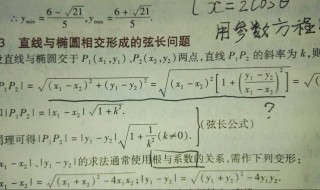 ∴ y_min = (6-√21)/5, y_max = (6+√21)/5.
{x=2cosθ
用参数方程
3 直线与椭圆相交形成的弦长问题
直线与椭圆交于 P₁(x₁,y₁),P₂(x₂,y₂)两点,直线 P₁P₂ 的斜率为 k,则
P₁P₂|=√((x₁-x₂)²+(y₁-y₂)²)=√((x₁-x₂)²[1+((y₁-y₂)/(x₁-x₂))²])
?
|P₁P₂|=|x₁-x₂|√(1+k²).
理可得|P₁P₂|=|y₁-y₂|√(1+1/k²)(k≠0).
(弦长公式)
x₁-x₂|、|y₁-y₂|的求法通常使用根与系数的关系,需作下列变形:
x₁-x₂|=√((x₁+x₂)²-4x₁x₂);|y₁-y₂|=√((y₁+y₂)²-4y₁y₂).